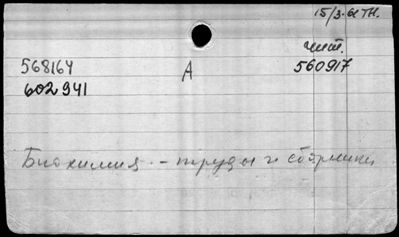 15/3-61 ТН.
чит.
568164 А 560917
602941
Биохимия - труды и сборники